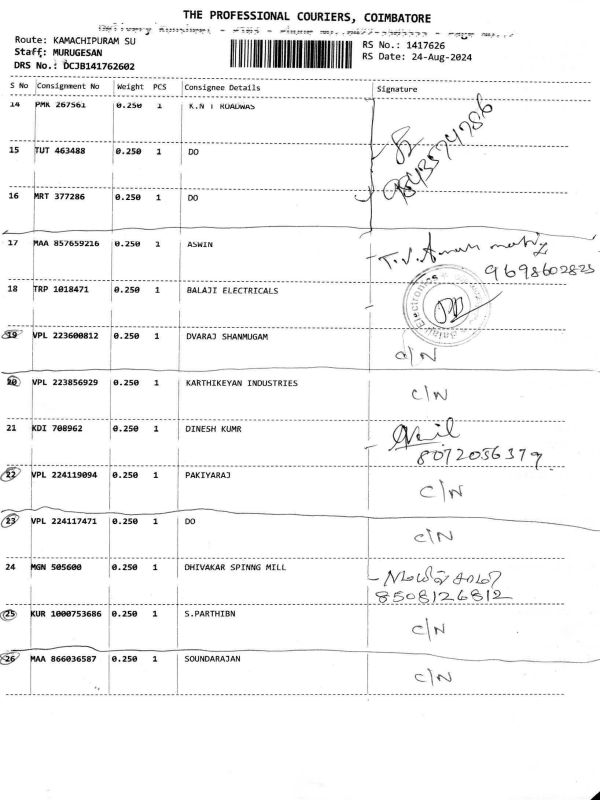 THE PROFESSIONAL COURIERS, COIMBATORE
Route: KAMACHIPURAM SU
Staff: MURUGESAN
DRS No.: DCJB141762602
RS No.: 1417626
RS Date: 24-Aug-2024
S No Consignment No Weight PCS Consignee Details Signature
14 PMK 267561 0.250 1 K.N T ROADWAS
9843574786
15 TUT 463488 0.250 1 DO
16 MRT 377286 0.250 1 DO
17 MAA 857659216 0.250 1 ASWIN
9698602823
18 TRP 1018471 0.250 1 BALAJI ELECTRICALS
Balaji Electronics
19 VPL 223600812 0.250 1 DVARAJ SHANMUGAM C/N
20 VPL 223856929 0.250 1 KARTHIKEYAN INDUSTRIES C/N
21 KDI 708962 0.250 1 DINESH KUMR
8072056379
22 VPL 224119094 0.250 1 PAKIYARAJ C/N
23 VPL 224117471 0.250 1 DO C/N
24 MGN 505600 0.250 1 DHIVAKAR SPINNG MILL
8508126812
25 KUR 1000753686 0.250 1 S.PARTHIBN C/N
26 MAA 866036587 0.250 1 SOUNDARAJAN C/N